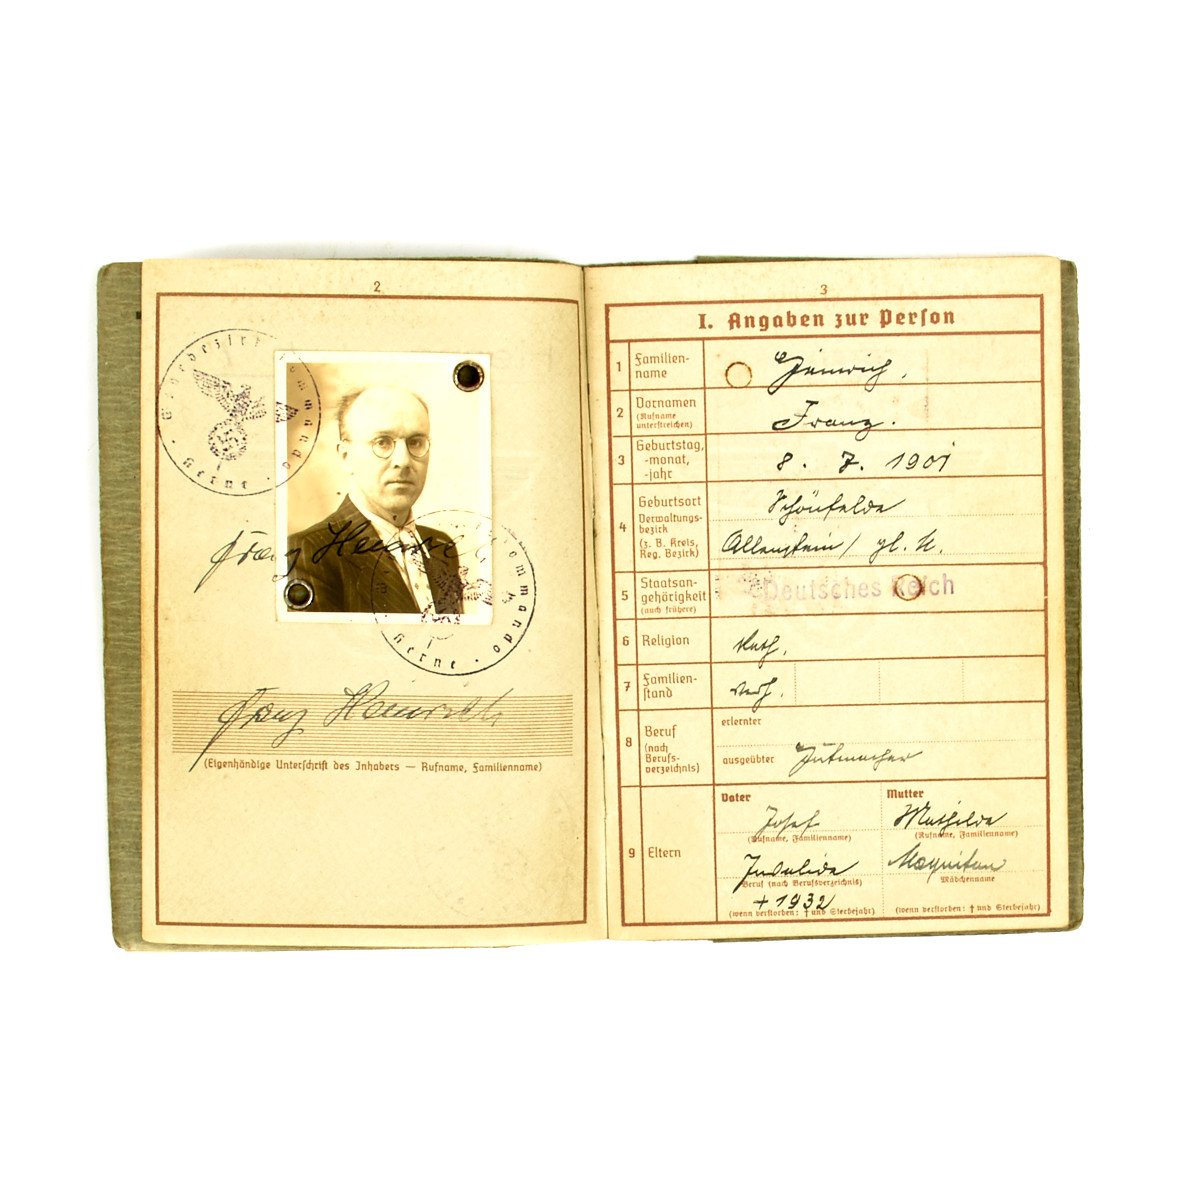 2
Wehrbezirkskommando
Herne
Franz Heinrich
kommando
Herne
Franz Heinrich
(Eigenhändige Unterschrift des Inhabers — Rufname, Familienname)
3
I. Angaben zur Person
1 Familien-name Heinrich.
2 Vornamen (Rufname unterstreichen) Franz.
3 Geburtstag, -monat, -jahr 8. 7. 1901
4 Geburtsort Schönfelde
Verwaltungs-bezirk (z. B. Kreis, Reg. Bezirk) Allenstein/
5 Staatsan-gehörigkeit (auch frühere) Deutsches Reich
6 Religion kath.
7 Familien-stand verh.
8 Beruf (nach Berufs-verzeichnis)
erlernter
ausgeübter
9 Eltern
Vater Mutter
Josef Mathilde
(Rufname, Familienname) (Rufname, Familienname)
Invalide
Beruf (nach Berufsverzeichnis) Mädchenname
+ 1932
(wenn verstorben: † und Sterbejahr) (wenn verstorben: † und Sterbejahr)